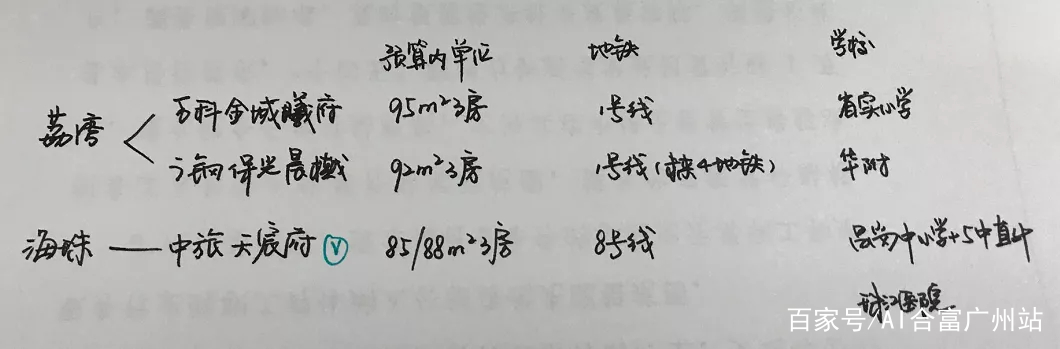 预算内单位 地铁 学校
荔湾 万科金域曦府 95m²3房 1号线 省实小学
广钢保光晨樾 92m²3房 1号线(接4地铁) 华附
海珠 — 中旅天宸府 V 85/88m²3房 8号线 昌岗中小学+5中直升
珠江医院
百家号/AI合富广州站